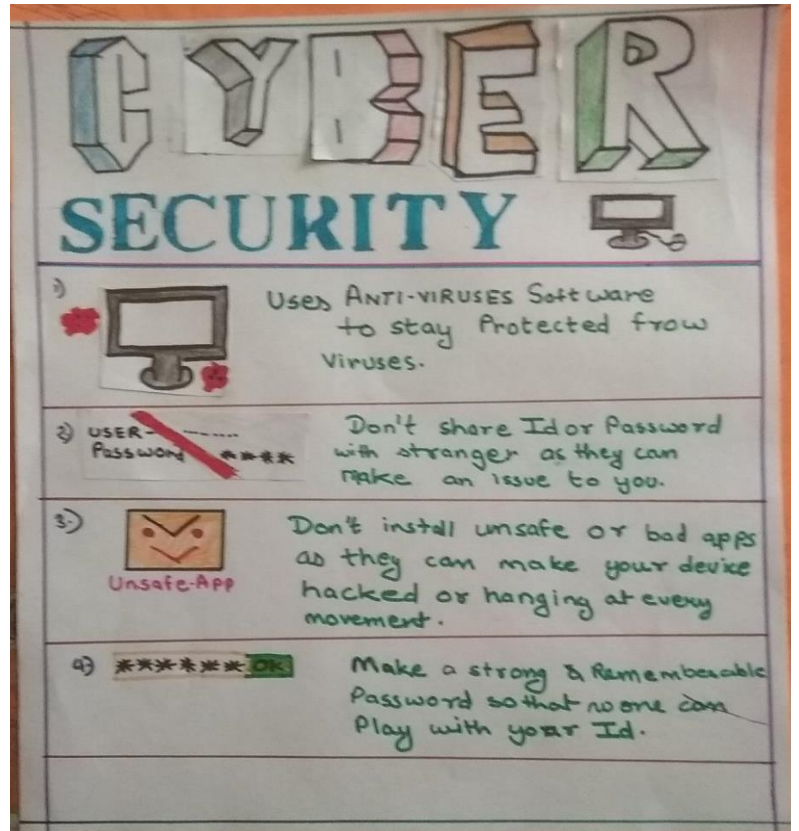 CYBER
SECURITY
1)
Uses ANTI-VIRUSES Software
to stay Protected frow
Viruses.
2) USER- -------
Password ****
Don't share Id or Password
with stranger as they can
make an issue to you.
3)
Unsafe-App
Don't install unsafe or bad apps
as they can make your device
hacked or hanging at every
movement.
4) ****** OK
Make a strong & Rememberable
Password so that no one can
Play with your Id.